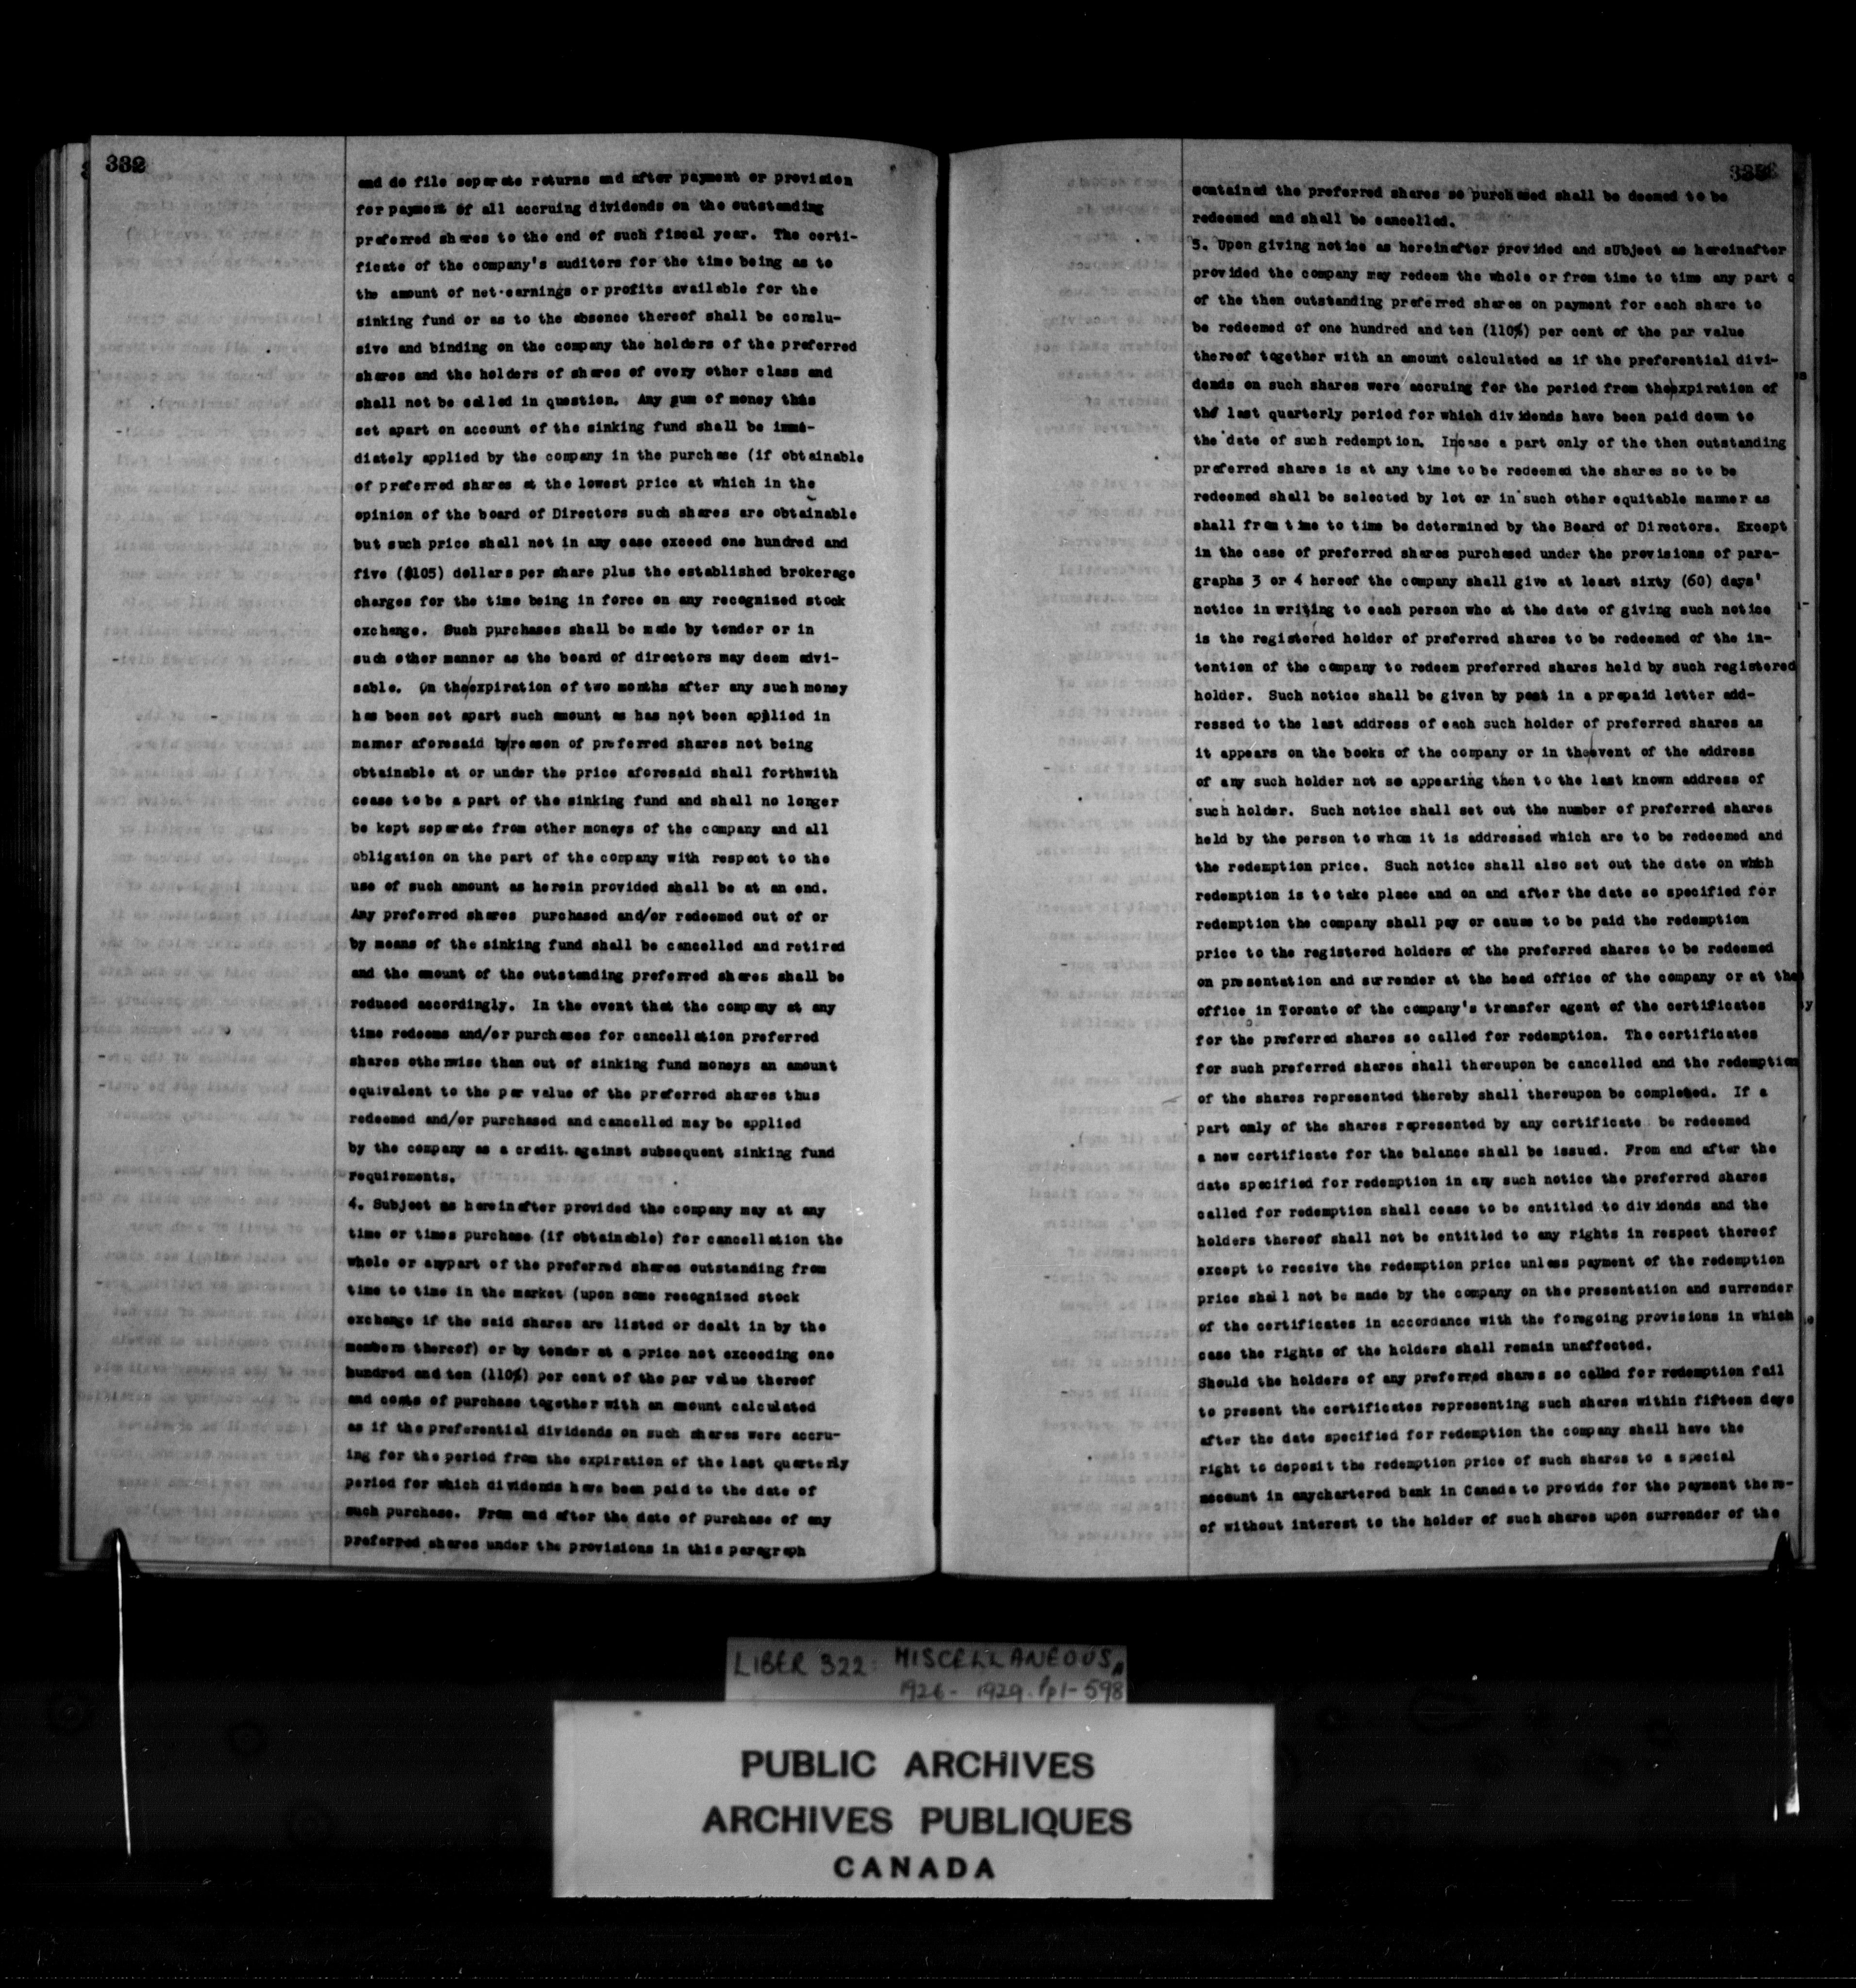 332
and do file separate returns and after payment or provision
for payment of all accruing dividends on the outstanding
preferred shares to the end of such fiscal year. The certi-
ficate of the company's auditors for the time being as to
the amount of net earnings or profits available for the
sinking fund or as to the absence thereof shall be conclu-
sive and binding on the company the holders of the preferred
shares and the holders of shares of every other class and
shall not be called in question. Any sum of money thus
set apart on account of the sinking fund shall be imme-
diately applied by the company in the purchase (if obtainable
of preferred shares at the lowest price at which in the
opinion of the board of Directors such shares are obtainable
but such price shall not in any case exceed one hundred and
five ($105) dollars per share plus the established brokerage
charges for the time being in force on any recognized stock
exchange. Such purchases shall be made by tender or in
such other manner as the board of directors may deem advi-
sable. On the/expiration of two months after any such money
has been set apart such amount as has not been applied in
manner aforesaid by/reason of preferred shares not being
obtainable at or under the price aforesaid shall forthwith
cease to be a part of the sinking fund and shall no longer
be kept separate from other moneys of the company and all
obligation on the part of the company with respect to the
use of such amount as herein provided shall be at an end.
Any preferred shares purchased and/or redeemed out of or
by means of the sinking fund shall be cancelled and retired
and the amount of the outstanding preferred shares shall be
reduced accordingly. In the event that the company at any
time redeems and/or purchases for cancellation preferred
shares otherwise than out of sinking fund moneys an amount
equivalent to the par value of the preferred shares thus
redeemed and/or purchased and cancelled may be applied
by the company as a credit. against subsequent sinking fund
requirements.
4. Subject as hereinafter provided the company may at any
time or times purchase (if obtainable) for cancellation the
whole or anypart of the preferred shares outstanding from
time to time in the market (upon some recognized stock
exchange if the said shares are listed or dealt in by the
members thereof) or by tender at a price not exceeding one
hundred and ten (110%) per cent of the par value thereof
and costs of purchase together with an amount calculated
as if the preferential dividends on such shares were accru-
ing for the period from the expiration of the last quarterly
period for which dividends have been paid to the date of
such purchase. From and after the date of purchase of any
preferred shares under the provisions in this paragraph
contained the preferred shares so purchased shall be deemed to be
redeemed and shall be cancelled.
5. Upon giving notice as hereinafter provided and sUbject as hereinafter
provided the company may redeem the whole or from time to time any part o
of the then outstanding preferred shares on payment for each share to
be redeemed of one hundred and ten (110%) per cent of the par value
thereof together with an amount calculated as if the preferential divi-
dends on such shares were accruing for the period from the/expiration of
the last quarterly period for which dividends have been paid down to
the date of such redemption. In/case a part only of the then outstanding
preferred shares is at any time to be redeemed the shares so to be
redeemed shall be selected by lot or in such other equitable manner as
shall from time to time be determined by the Board of Directors. Except
in the case of preferred shares purchased under the provisions of para-
graphs 3 or 4 hereof the company shall give at least sixty (60) days'
notice in writing to each person who at the date of giving such notice
is the registered holder of preferred shares to be redeemed of the in-
tention of the company to redeem preferred shares held by such registered
holder. Such notice shall be given by post in a prepaid letter add-
ressed to the last address of each such holder of preferred shares as
it appears on the books of the company or in the/event of the address
of any such holder not so appearing then to the last known address of
such holder. Such notice shall set out the number of preferred shares
held by the person to whom it is addressed which are to be redeemed and
the redemption price. Such notice shall also set out the date on which
redemption is to take place and on and after the date so specified for
redemption the company shall pay or cause to be paid the redemption
price to the registered holders of the preferred shares to be redeemed
on presentation and surrender at the head office of the company or at the
office in Toronto of the company's transfer agent of the certificates
for the preferred shares so called for redemption. The certificates
for such preferred shares shall thereupon be cancelled and the redemption
of the shares represented thereby shall thereupon be completed. If a
part only of the shares represented by any certificate be redeemed
a new certificate for the balance shall be issued. From and after the
date specified for redemption in any such notice the preferred shares
called for redemption shall cease to be entitled to dividends and the
holders thereof shall not be entitled to any rights in respect thereof
except to receive the redemption price unless payment of the redemption
price shall not be made by the company on the presentation and surrender
of the certificates in accordance with the foregoing provisions in which
case the rights of the holders shall remain unaffected.
Should the holders of any preferred shares so called for redemption fail
to present the certificates representing such shares within fifteen days
after the date specified for redemption the company shall have the
right to deposit the redemption price of such shares to a special
account in anychartered bank in Canada to provide for the payment there-
of without interest to the holder of such shares upon surrender of the
LIBER 322 MISCELLANEOUS,
1926 - 1929. Pp1-598
PUBLIC ARCHIVES
ARCHIVES PUBLIQUES
CANADA